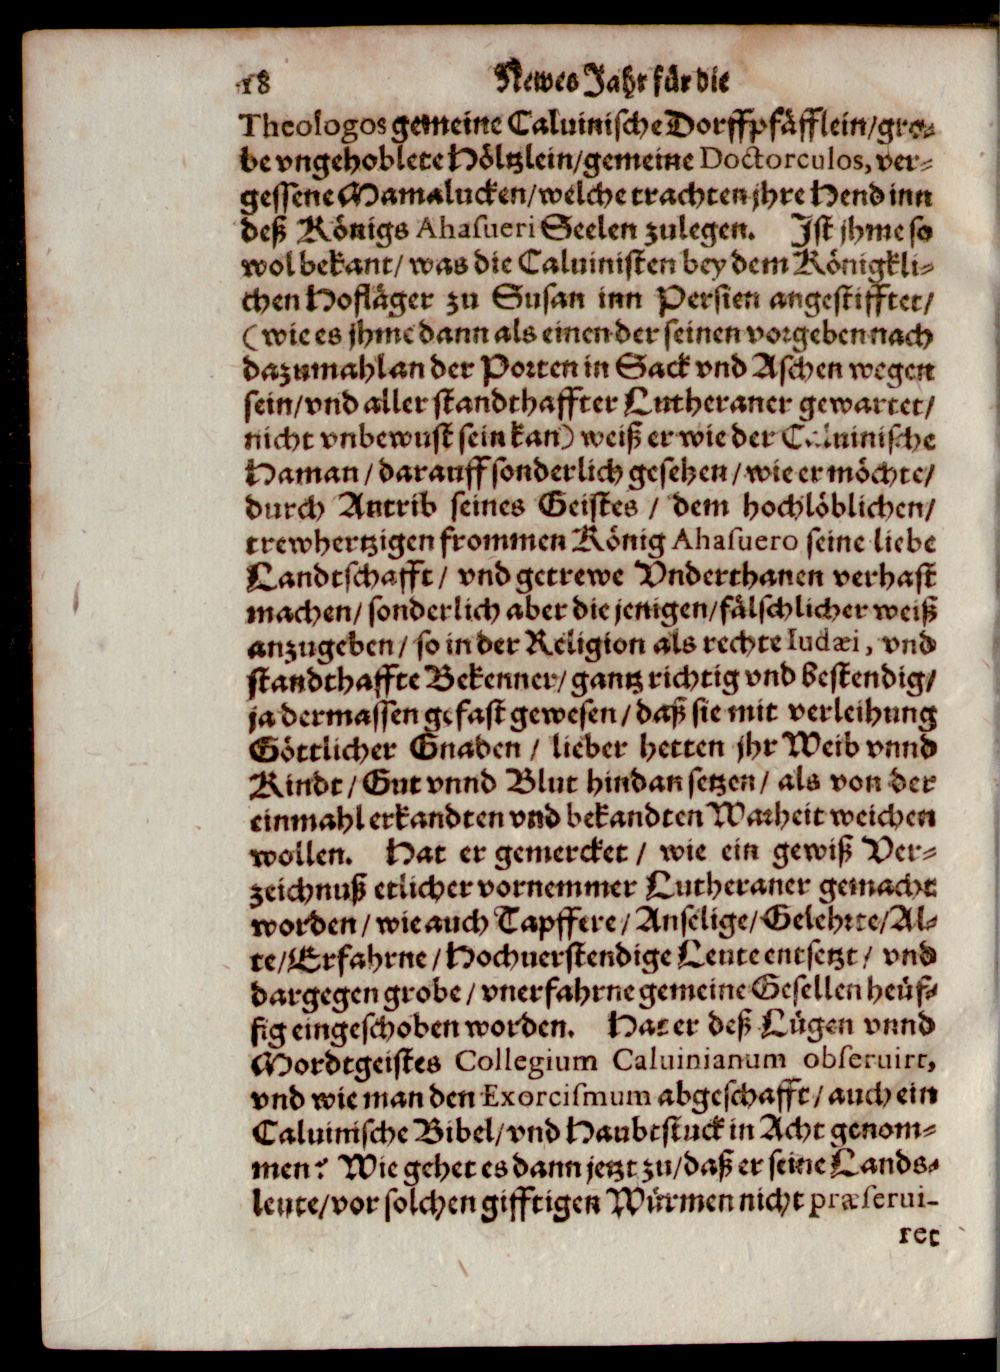 18 Newes Jahr für die
Theologos gemeine Caluinische Dorffpfäfflein/gro-
be vngehoblete Höltzlein/gemeine Doctorculos, ver-
gessene Mamalucken/welche trachten jhre Hend inn
deß Königs Ahasueri Seelen zulegen. Ist jhme so
wol bekant/ was die Caluinisten bey dem Königkli-
chen Hofläger zu Susan inn Persien angestifftet/
(wie es jhme dann als einen der seinen vorgeben nach
dazumahl an der Porten in Sack vnd Aschen wegen
sein/vnd aller standthaffter Lutheraner gewartet/
nicht vnbewust sein kan) weiß er wie der Caluinische
Haman/darauff sonderlich gesehen/wie er möchte/
durch Antrib seines Geistes / dem hochlöblichen/
trewhertzigen frommen König Ahasuero seine liebe
Landtschafft/ vnd getrewe Vnderthanen verhast
machen/ sonderlich aber die jenigen/fälschlicher weiß
anzugeben/ so in der Religion als rechte Iudæi, vnd
standthaffte Bekenner/ gantz richtig vnd bestendig/
ja dermassen gefast gewesen/daß sie mit verleihung
Göttlicher Gnaden / lieber hetten jhr Weib vnnd
Kindt/Gut vnnd Blut hindan setzen/ als von der
einmahl erkandten vnd bekandten Warheit weichen
wollen. Hat er gemercket / wie ein gewiß Ver-
zeichnuß etlicher vornemmer Lutheraner gemacht
worden/ wie auch Tapffere/Anselige/Gelehrte/Al-
te/Erfahrne/Hochuerstendige Leute entsetzt/ vnd
dargegen grobe/vnerfahrne gemeine Gesellen heüf-
fig eingeschoben worden. Hat er deß Lügen vnnd
Mordtgeistes Collegium Caluinianum obseruirt,
vnd wie man den Exorcismum abgeschafft/auch ein
Caluinische Bibel/vnd Haubtstuck in Acht genom-
men? Wie gehet es dann jetzt zu/daß er seine Lands-
leute/vor solchen gifftigen Würmen nicht præserui-
ret